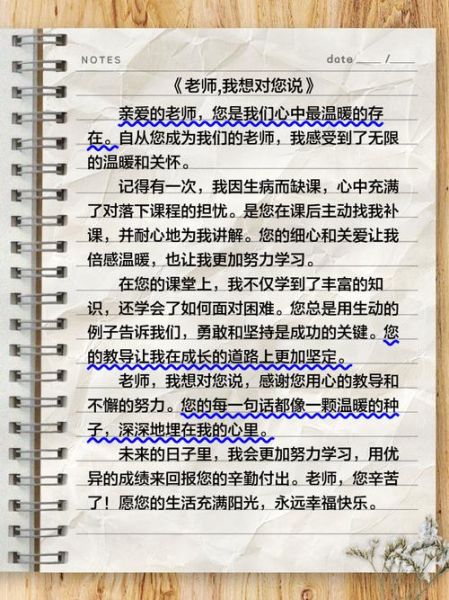 NOTES date ____ /____
《老师,我想对您说》
亲爱的老师，您是我们心中最温暖的存
在。自从您成为我们的老师，我感受到了无限
的温暖和关怀。
记得有一次，我因生病而缺课，心中充满
了对落下课程的担忧。是您在课后主动找我补
课，并耐心地为我讲解。您的细心和关爱让我
倍感温暖，也让我更加努力学习。
在您的课堂上，我不仅学到了丰富的知
识，还学会了如何面对困难。您总是用生动的
例子告诉我们，勇敢和坚持是成功的关键。您
的教导让我在成长的道路上更加坚定。
老师，我想对您说，感谢您用心的教导和
不懈的努力。您的每一句话都像一颗温暖的种
子，深深地埋在我的心里。
未来的日子里，我会更加努力学习，用优
异的成绩来回报您的辛勤付出。老师，您辛苦
了！愿您的生活充满阳光，永远幸福快乐。